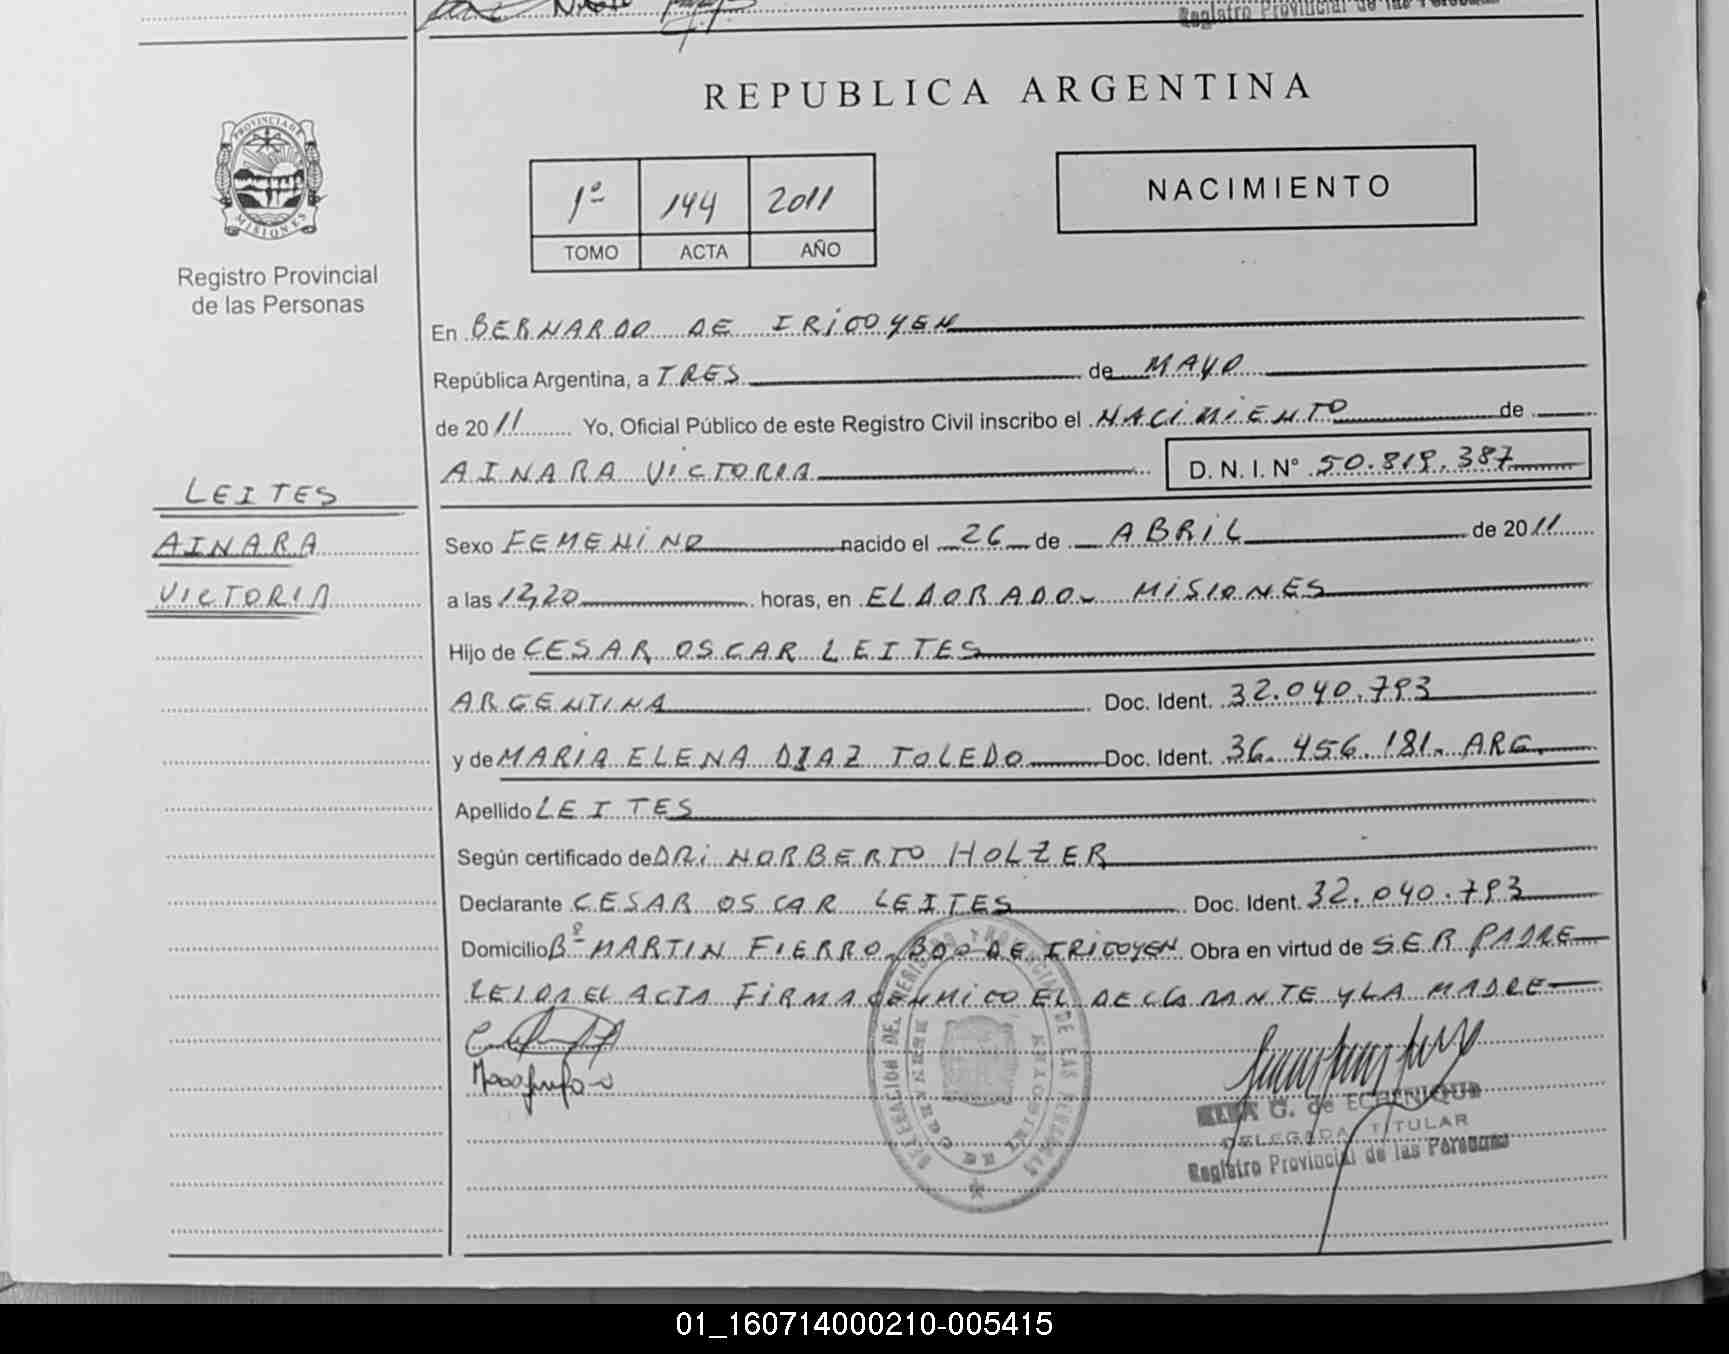 Registro Provincial de las Personas
REPUBLICA ARGENTINA
PROVINCIA DE
MISIONES
Registro Provincial
de las Personas
1º 144 2011
TOMO ACTA AÑO
NACIMIENTO
En BERNARDO DE IRIGOYEN
República Argentina, a TRES de MAYO
de 2011 Yo, Oficial Público de este Registro Civil inscribo el NACIMIENTO de
AINARA VICTORIA D. N. I. N° 50.819.387
LEITES
AINARA
VICTORIA
Sexo FEMENINO nacido el 26 de ABRIL de 2011
a las 12,20 horas, en ELDORADO - MISIONES
Hijo de CESAR OSCAR LEITES
ARGENTINA Doc. Ident. 32.040.793
y de MARIA ELENA DIAZ TOLEDO Doc. Ident. 36.456.181. ARG.
Apellido LEITES
Según certificado de DR: NORBERTO HOLZER
Declarante CESAR OSCAR LEITES Doc. Ident. 32.040.793
Domicilio Bº MARTIN FIERRO, BDO DE IRIGOYEN Obra en virtud de SER PADRE
LEIDA EL ACTA FIRMA CONMIGO EL DECLARANTE Y LA MADRE
G. de ECHENIQUE
DELEGADA TITULAR
Registro Provincial de las Personas
01_160714000210-005415